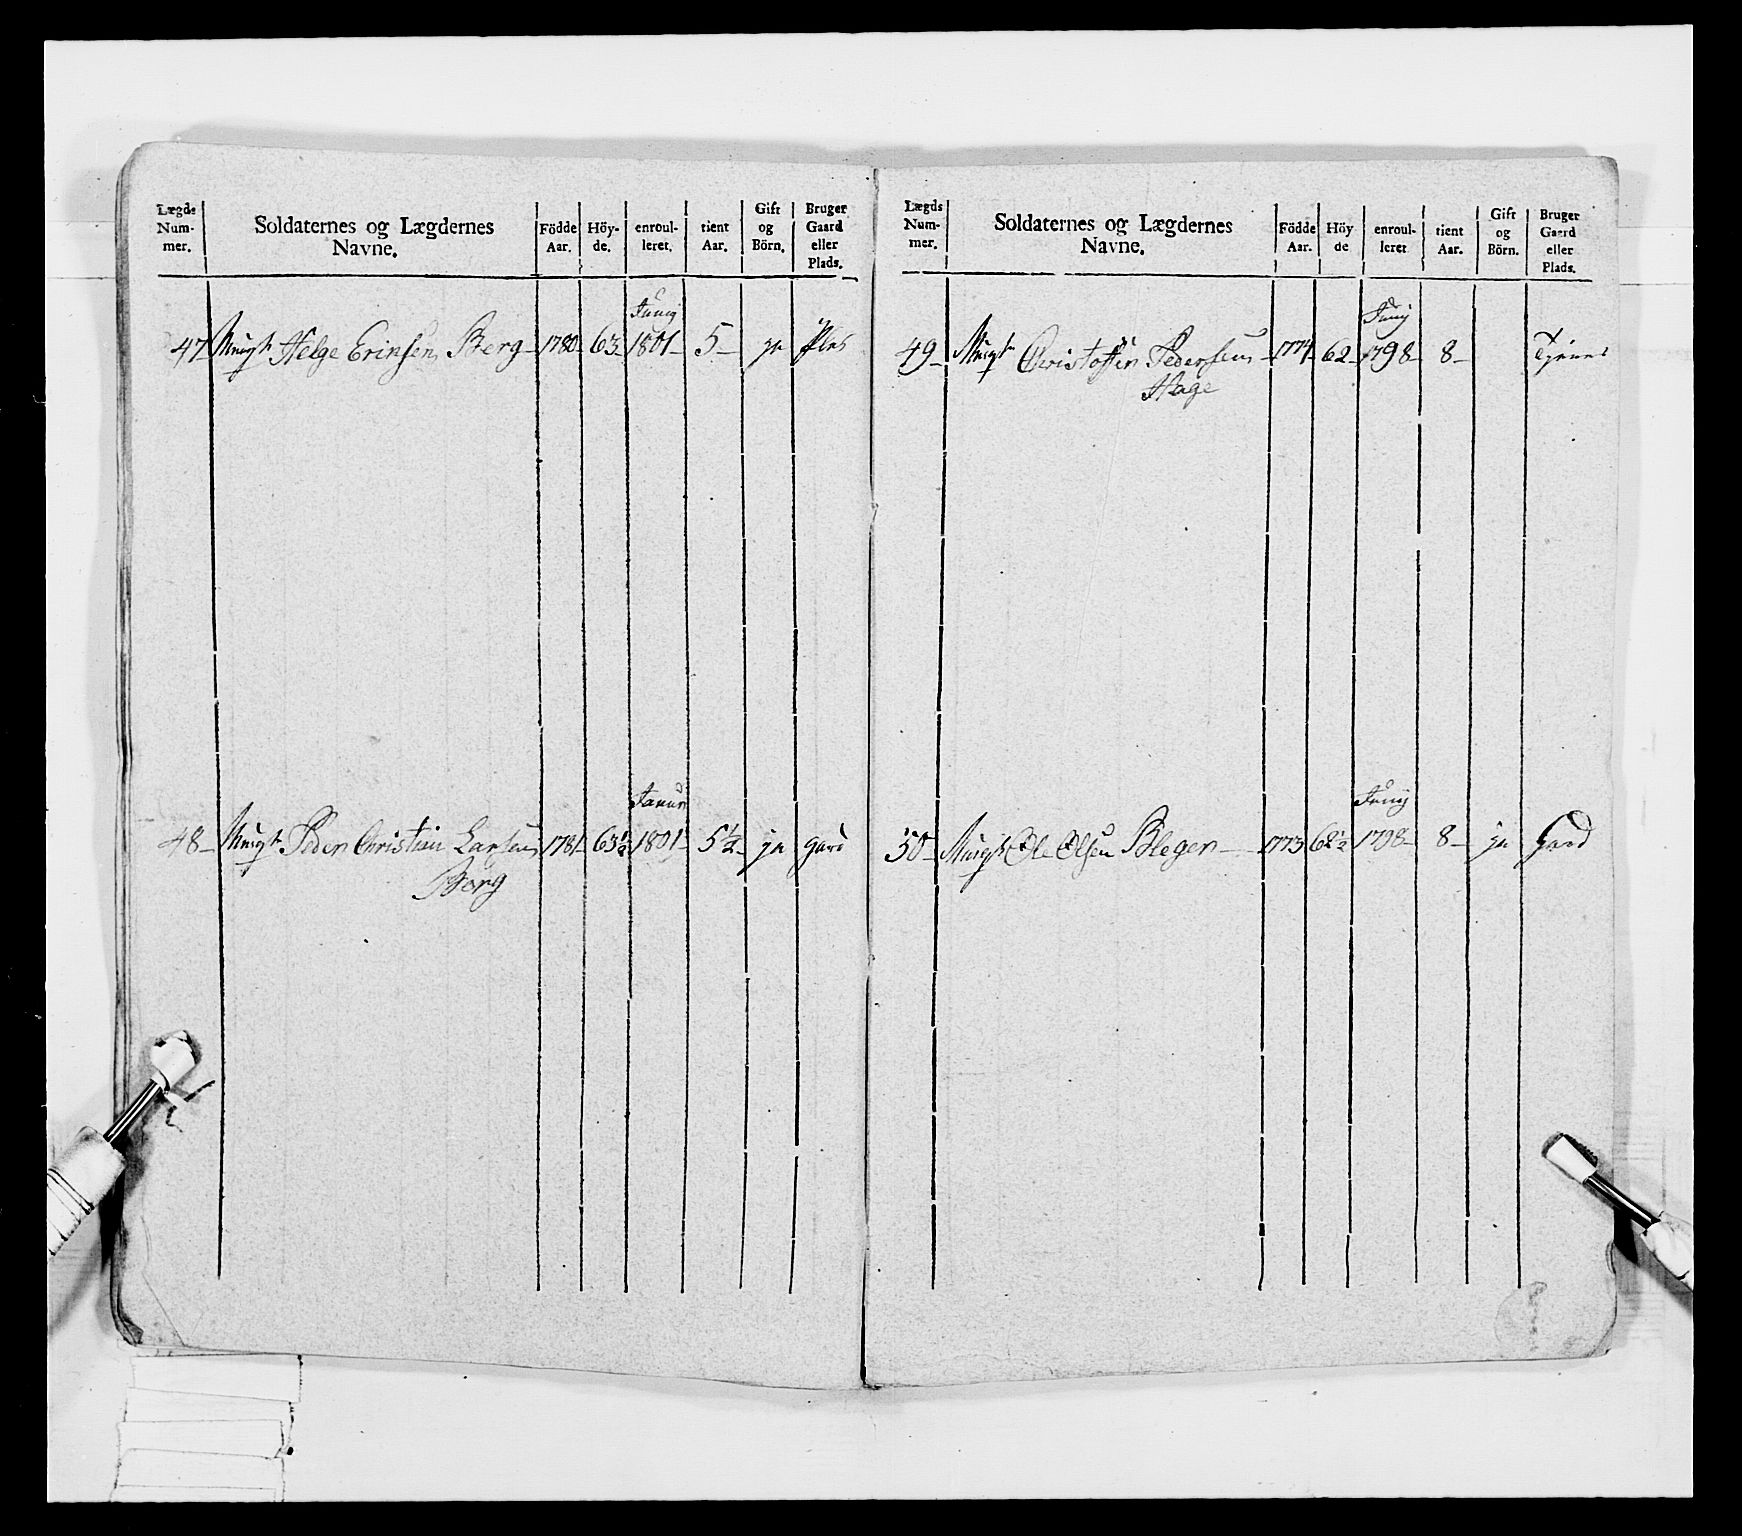 Lægds Num- mer. Soldaternes og Lægdernes Navne. Födde Aar. Höy- de. enroul- leret. tient Aar. Gift og Börn. Bruger Gaard eller Plads.
Junij
47 Helge Erinsen Berg 1780 63 1801 5 ja Plas
Januar
48 Peder Christian Larsen 1781 63½ 1801 5½ ja gard
Borg
Lægds Num- mer. Soldaternes og Lægdernes Navne. Födde Aar. Höy de enroul- leret tient Aar. Gift og Börn. Bruger Gaard eller Plads.
Junij
49 Christoffer Pedersen 1774 62 1798 8 Tjener
Hage
Junij
50 Ole Olsen Bleger 1773 62½ 1798 8 ja Gard